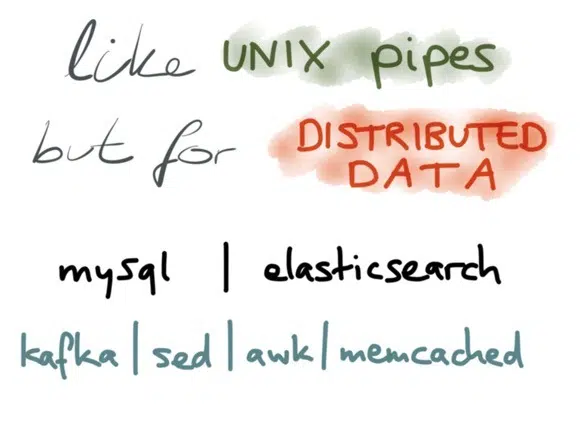 like UNIX pipes
but for DISTRIBUTED
DATA
mysql | elasticsearch
kafka | sed | awk | memcached